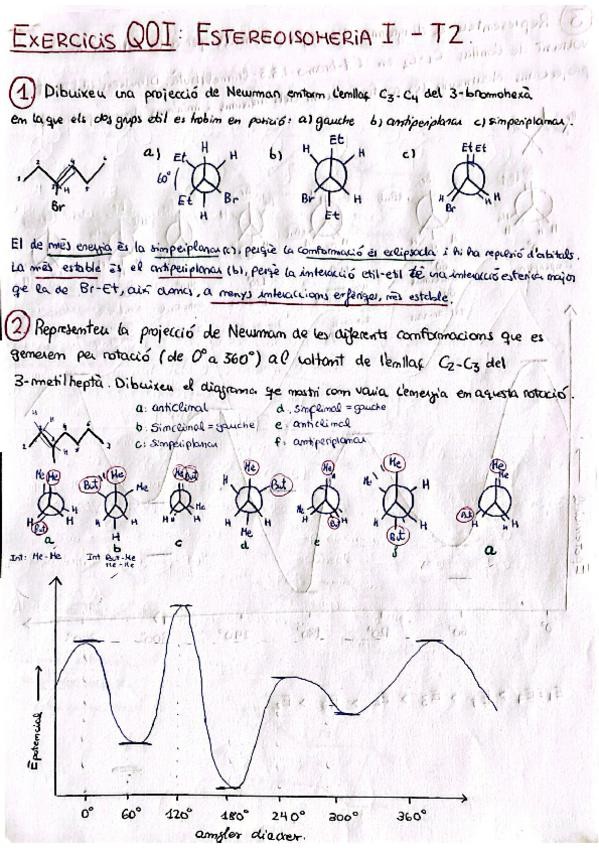 EXERCICIS QOI: ESTEREOISOMERIA I - T2.
1 Dibuixeu una projecció de Newman entorn l'enllaç C3-C4 del 3-bromohexà
en la que els dos grups etil es trobin en posició: a) gauche b) antiperiplanar c) sinperiplanar.
a) b) c)
Et H H
60°
Et Br H
Et H H
H Br Et
Et Et
Br H H
Br
El de més energia és la sinperiplanar (c), perquè la conformació és eclipsada i hi ha repulsió d'orbitals.
La més estable és el antiperiplanar (b), perquè la interacció etil-etil té una interacció estèrica major
que la de Br-Et, així doncs, a menys interaccions enfèriges, més estable.
2 Representeu la projecció de Newman de les diferents conformacions que es
generen per rotació (de 0° a 360°) al voltant de l'enllaç C2-C3 del
3-metilheptà. Dibuixeu el diagrama que mostri com varia l'energia en aquesta rotació.
a: anticlinal d. sinclinal = gauche
b. sinclinal = gauche e: anticlinal
c: sinperiplanar f. antiperiplanar
Me Me But Me Me Me But Me Me Me Me
But H H H But Me H H Me But But
a b c d e f a
Int: Me-Me Int But-Me
Me-Me
Epotencial
0° 60° 120° 180° 240° 300° 360°
angles diedres.